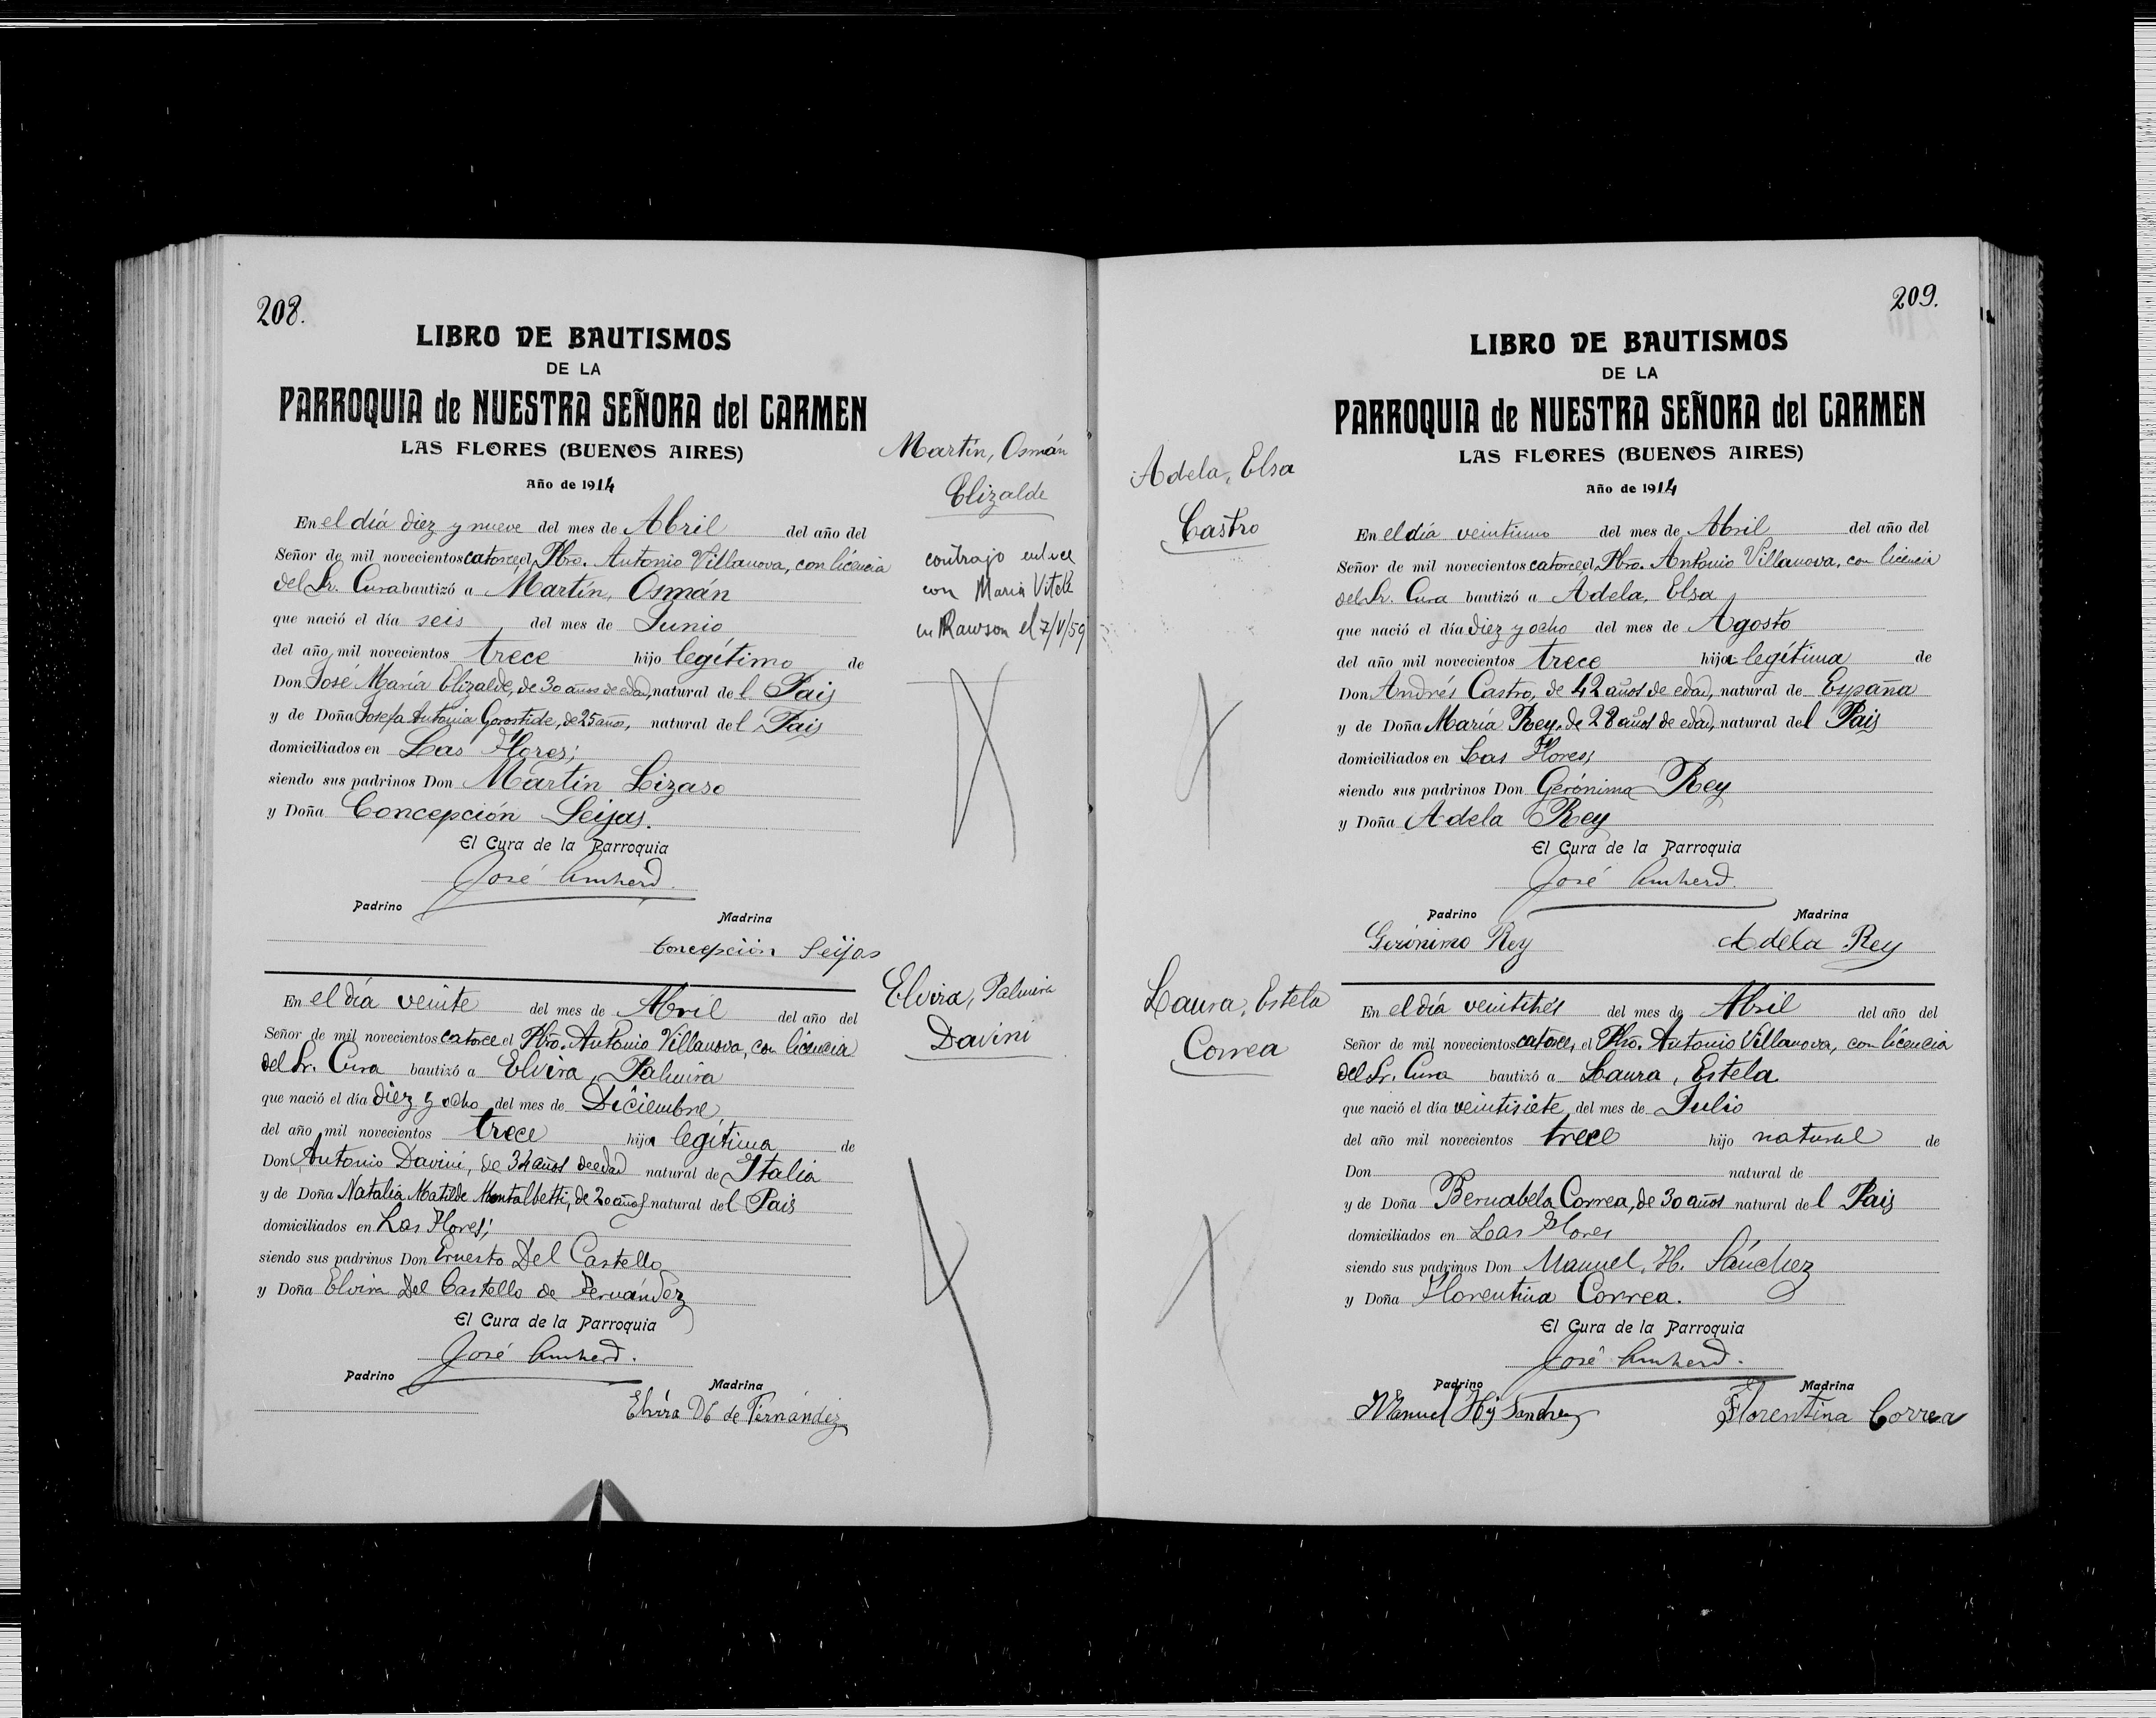 208.
LIBRO DE BAUTISMOS
DE LA
PARROQUIA de NUESTRA SEÑORA del CARMEN
LAS FLORES (BUENOS AIRES)
Año de 1914
Martín, Osmán
Elizalde
contrajo enlace
con María
en Rawson el 7/V/59
En el día diez y nueve del mes de Abril del año del
Señor de mil novecientos catorce, el Pbro. Antonio Villanova, con licencia
del Sr. Cura bautizó a Martín, Osmán
que nació el día seis del mes de Junio
del año mil novecientos trece hijo legítimo de
Don José María Elizalde, de 30 años de edad, natural del País
y de Doña Josefa Antonia Gorostide, de 25 años, natural del País
domiciliados en Las Flores;
siendo sus padrinos Don Martín Lizaso
y Doña Concepción Seijas.
El Cura de la Parroquia
José Amherd.
Padrino
Madrina
Concepción Seijas
Elvira, Palmira
Davini
En el día veinte del mes de Abril del año del
Señor de mil novecientos catorce el Pbro. Antonio Villanova, con licencia
del Sr. Cura bautizó a Elvira, Palmira
que nació el día diez y ocho del mes de Diciembre
del año mil novecientos trece hija legítima de
Don Antonio Davini, de 34 años de edad natural de Italia
y de Doña Natalia Matilde Montalbetti, de 20 años natural del País
domiciliados en Las Flores;
siendo sus padrinos Don Ernesto Del Castello
y Doña Elvira Del Castello de Fernández
El Cura de la Parroquia
José Amherd.
Padrino
Madrina
Elvira DC de Fernández
209.
LIBRO DE BAUTISMOS
DE LA
PARROQUIA de NUESTRA SEÑORA del CARMEN
LAS FLORES (BUENOS AIRES)
Año de 1914
Adela, Elsa
Castro
En el día veintiuno del mes de Abril del año del
Señor de mil novecientos catorce el Pbro. Antonio Villanova, con licencia
del Sr. Cura bautizó a Adela, Elsa
que nació el día diez y ocho del mes de Agosto
del año mil novecientos trece hija legítima de
Don Andrés Castro, de 42 años de edad, natural de España
y de Doña María Rey, de 28 años de edad, natural del País
domiciliados en Las Flores;
siendo sus padrinos Don Gerónimo Rey
y Doña Adela Rey
El Cura de la Parroquia
José Amherd.
Padrino
Madrina
Gerónimo Rey
Adela Rey
Laura, Estela
Correa
En el día veintitrés del mes de Abril del año del
Señor de mil novecientos catorce, el Pbro. Antonio Villanova, con licencia
del Sr. Cura bautizó a Laura, Estela
que nació el día veintisiete del mes de Julio
del año mil novecientos trece hijo natural de
Don natural de
y de Doña Bernabela Correa, de 30 años natural del País
domiciliados en Las Flores
siendo sus padrinos Don Manuel, H. Sánchez
y Doña Florentina Correa.
El Cura de la Parroquia
José Amherd.
Padrino
Madrina
Manuel Sanchez
Florentina Correa